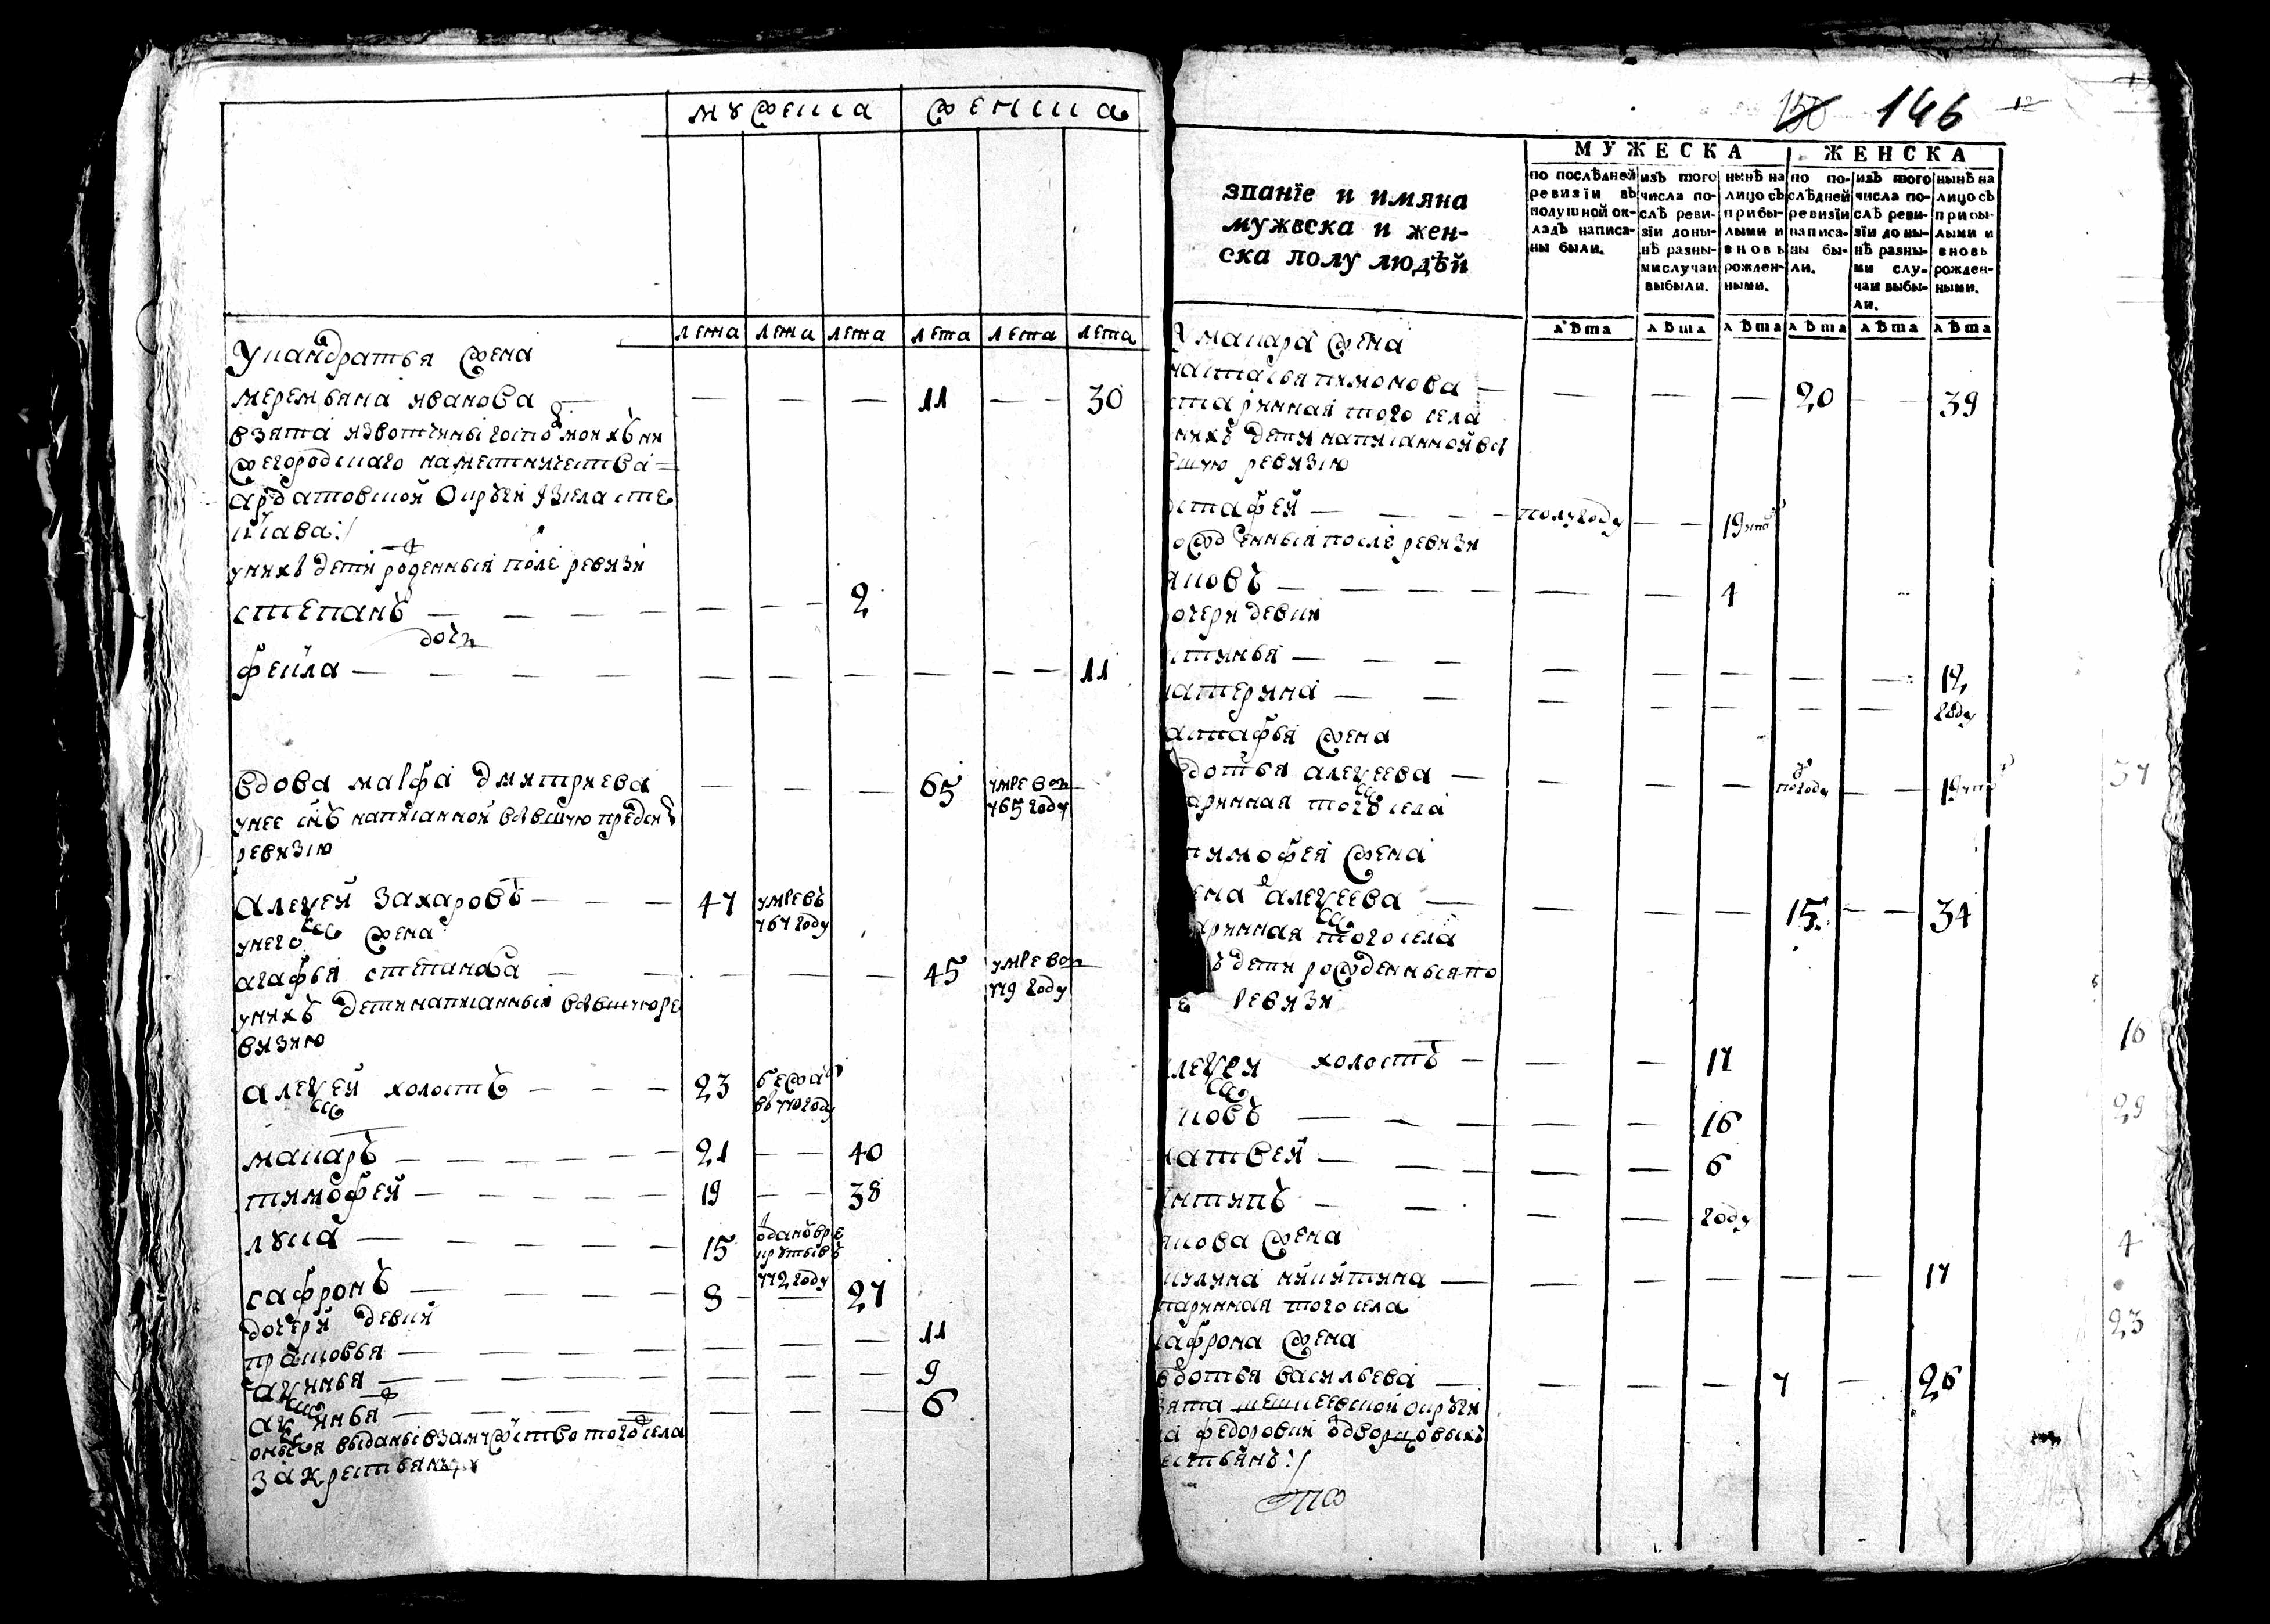 мужеска женска
лета лета лета лета лета лета
У кандратья жена
меремьяна иванова — — — — 11 — — 30
взята из вотчины госпо моихъ ни
жегородскаго наместничества
ардатовской округи изсела сте
унихъ дети рожденныя после ревизи
степанъ — — — — — — — 2
дочь
фекла — — — — — — — — — — — 11
вдова марфа дмитриева — — — 65 умре въ
765 году
унее снъ написанной вбывшую пред сиъ
ревизию
алеѯей захаровъ — — — 47 умре въ
767 году
унего жена
агафья степанова — — — — — 45 умре въ
779 году
унихъ дети написанныя вбывшую ре
визию
алеѯей холостъ — — — 23 бежа
въ 770 году
макаръ — — — — — — 21 — — 40
тимофей — — — — — 19 — — 38
лука — — — — — 15 оданъ в ре
круты въ
772 году
сафронъ — — — — 8 — — 27
дочери девки
прасковья — — — — — — — 11
аѯинья — — — — — — — — 9
— — — — — — — 6
оныя выданы взамужство того села
за крестьянъ
150 146 12
МУЖЕСКА ЖЕНСКА
званїе и имяна
мужеска и жен-
ска полу людѣй
по послѣдней
ревизїи въ
подушной ок-
ладъ написа-
ны были.
изъ того
числа по-
слѣ реви-
зїи доны-
нѣ разны-
мислучаи
выбыли.
нынѣ на
лицо съ
прибы-
лыми и
вновь
рожден-
ными.
по по-
слѣдней
ревизїи
написа-
ны бы-
ли.
изъ того
числа по-
слѣ реви-
зїи до ны-
нѣ разны-
ми слу-
чаи выбы-
ли.
нынѣ на
лицо съ
прибы-
лыми и
вновь
рожден-
ными.
лѣта лѣта лѣта лѣта лѣта лѣта
У макара жена
настасья пимонова — — — — 20 — — 39
старинная того села
унихъ дети написанной въ
бывшую ревизию
остафей — — — полугоду — — 19
рожденныя после ревизи
яковъ — — — — — — 4
дочери девки
устинья — — — — — — — — 12
катерина — — — — — — — году
астафья жена
авдотья алеѯеева — — — — погоду — — 19
старинная того села
тимофея жена
алеѯеева — — — — 15 — — 34
старинная того села
дети рожденныя по
ле ревизи
алеѯей холостъ — — — 17
яковъ — — — — — 16
матвей — — — — — 6
антипъ — — — — году
якова жена
акулина никитина — — — — — — 17
старинная того села
сафрона жена
авдотья васильева — — — — 7 — 26
взята шешкеевской округи
ла федоровки дворцовыхъ
крестьянъ
37
16
29
4
23